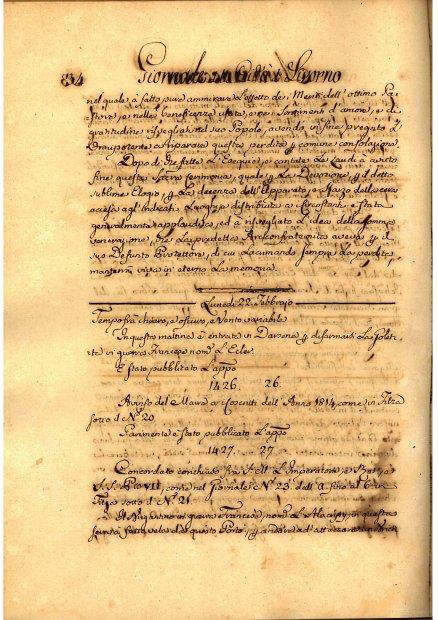 834
Giornale di Città e Livorno
nel quale à fatto pure ammirare l'effetto de' Meriti dell'ottimo Pa-
store, e nelle beneficenze usate, e ne' sentimenti d'amore, e di
gratitudine risvegliati nel suo Popolo, avendo in fine pregato l'
Onnipotente a riparare questa perdita p comune consolazione.
Dopo di che fatte l'Esequie, e cantate le Laudi à avuto
fine questa Sacra Cerimonia, quale p la Devozione, p il detto
sublime Elogio, p la decenza dell'Apparato, e sfarzo della cera
accesa agl'indicati Luoghi, e distribuita ai Circostanti è stata
generalmente applaudita, ed à risvegliato l'idea della somma
venerazione, che la predetta Arciconfraternita aveva p il
suo Defunto Protettore, di cui lacrimando sempre la perdita
manterrà viva in eterno la memoria.
Lunedì 22. Febbrajo
Tempo frà chiaro, e oscuro, e Vento variabile
In questa mattina è entrata in Darsena p disarmarsi la Polet-
tra di guerra Francese nom. L'Ecler.
È stato pubblicato l'appo
1426. 26.
Avviso del Maire ai Coscritti dell'Anno 1814, come in Filza
sotto il N.º 20.
Parimente è stato pubblicato l'appo
1427. 27
Concordato conchiuso frà l'Imperatore, e
S. S. Pio VII, come nel Giornale N.º 23. dell'a fino al 6 in
Filza sotto il N.º 21.
Il Brigantino di guerra Francese, nom. L'Alacrity, in questa
sera à fatto vela da questo Porto, p andare ad